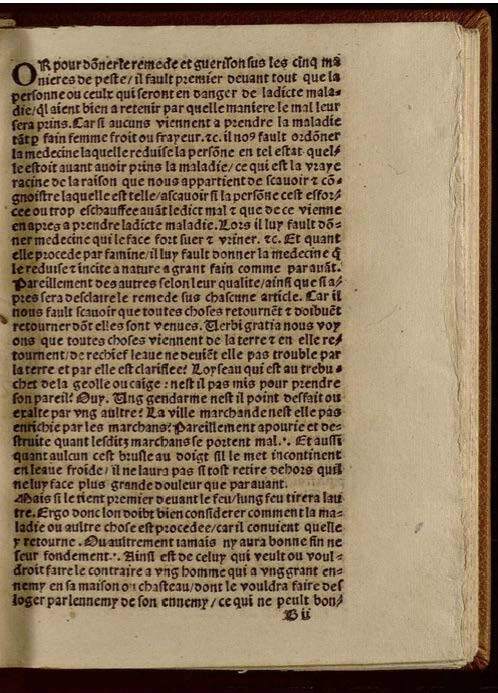 OR pour dōner le remede et guerison sus les cinq ma
nieres de peste/ il fault premier devant tout que la
personne ou ceulx qui seront en danger de ladicte mala-
die/ q̄l aient bien a retenir par quelle maniere le mal leur
sera prins. Car si aucuns viennent a prendre la maladie
tāt p̱ fain femme froit ou frayeur. ⁊c. il noꝰ fault ordōner
la medecine laquelle reduise la persōne en tel estat quel/
le estoit auant avoir prins la maladie/ ce qui est la vraye
racine de la raison que nous appartient de scauoir ⁊ cō-
gnoistre laquelle est telle/ ascauoir si la persōne cest effor/
cee ou trop eschauffee auāt ledict mal ⁊ que de ce vienne
en apres a prendre ladicte maladie. Lors il luy fault dō-
ner medecine qui le face fort suer ⁊ vriner. ⁊c. Et quant
elle procede par famine/ il luy fault donner la medecine q̄
le reduise ⁊ incite a nature a grant fain comme par auāt.
Pareillement des autres selon leur qualite/ ainsi que si a/
pres sera desclaire le remede sus chascune article. Car il
nous fault scauoir que toutes choses retournēt ⁊ doibuēt
retourner dōt elles sont venues. Verbi gratia nous voy
ons que toutes choses viennent de la terre ⁊ en elle re/
tournent/ de rechief leaue ne deuiēt elle pas trouble par
la terre et par elle est clarifiee? Loyseau qui est au trebu-
chet de la geolle ou caige: nest il pas mis pour prendre
son pareil? Ouy. Ung gendarme nest il point desfait ou
exalte par vng aultre? La ville marchande nest elle pas
enrichie par les marchans? Pareillement apourie et de-
struite quant lesditz marchans se portent mal.·. Et aussi
quant aulcun cest brusle au doigt sil le met incontinent
en leaue froide/ il ne laura pas si tost retire dehors quil
ne luy face plus grande douleur que parauant.
Mais si le tient premier deuant le feu/ lung feu tirera lau
tre. Ergo donc lon doibt bien considerer comment la ma-
ladie ou aultre chose est procedee/ car il conuient quelle
y retourne. Ou aultrement iamais ny aura bonne fin ne
seur fondement.·. Ainsi est de celuy qui veult ou voul-
droit faire le contraire a vng homme qui a vng grant en-
nemy en sa maison ou chasteau/ dont le vouldra faire des
loger par lennemy de son ennemy/ ce qui ne peult bon/
B ii